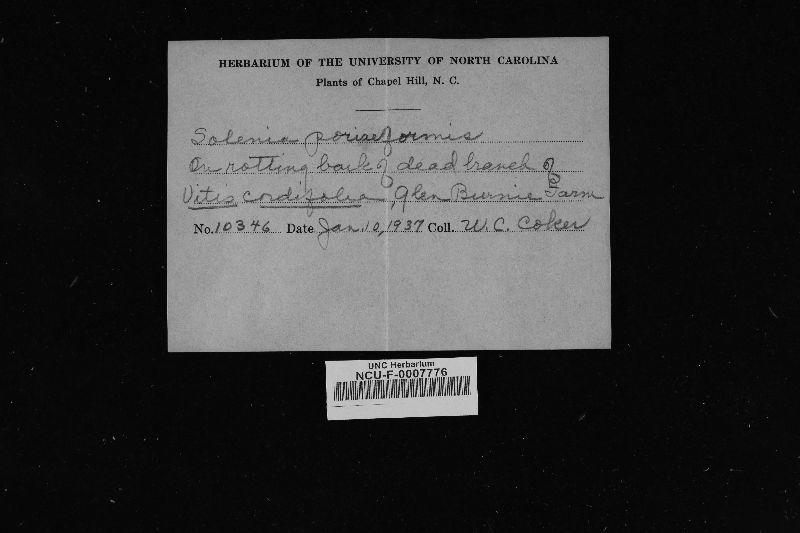 HERBARIUM OF THE UNIVERSITY OF NORTH CAROLINA
Plants of Chapel Hill, N. C.
Solenia poriaeformis
On rotting bark of dead branch of
Vitis cordifolia, Glen Burnie Farm
No. 10346 Date Jan. 10, 1937 Coll. W. C. Coker
UNC Herbarium
NCU-F-0007776